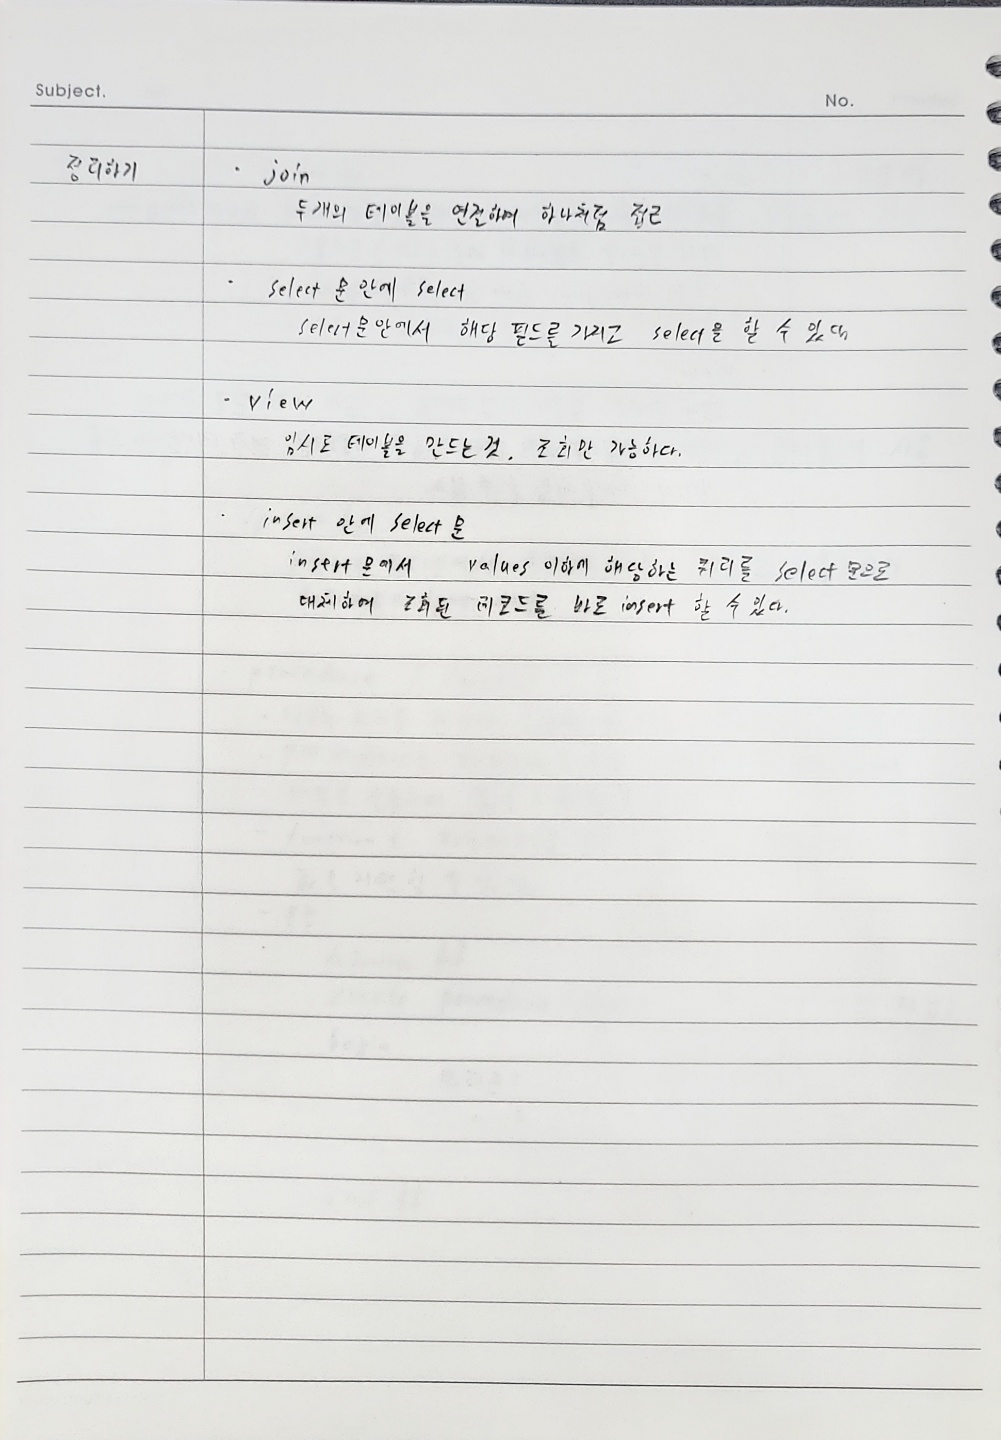 Subject.
No.
정리하기
· join
두개의 테이블을 연결하여 하나처럼 접근
· select 문 안에 select
select문안에서 해당 필드를 가지고 select문 할 수 있다
· view
임시로 테이블을 만드는 것. 조회만 가능하다.
· insert 안에 select 문
insert 문에서 values 이하에 해당하는 쿼리를 select 문으로
대체하여 조회된 레코드를 바로 insert 할 수 있다.